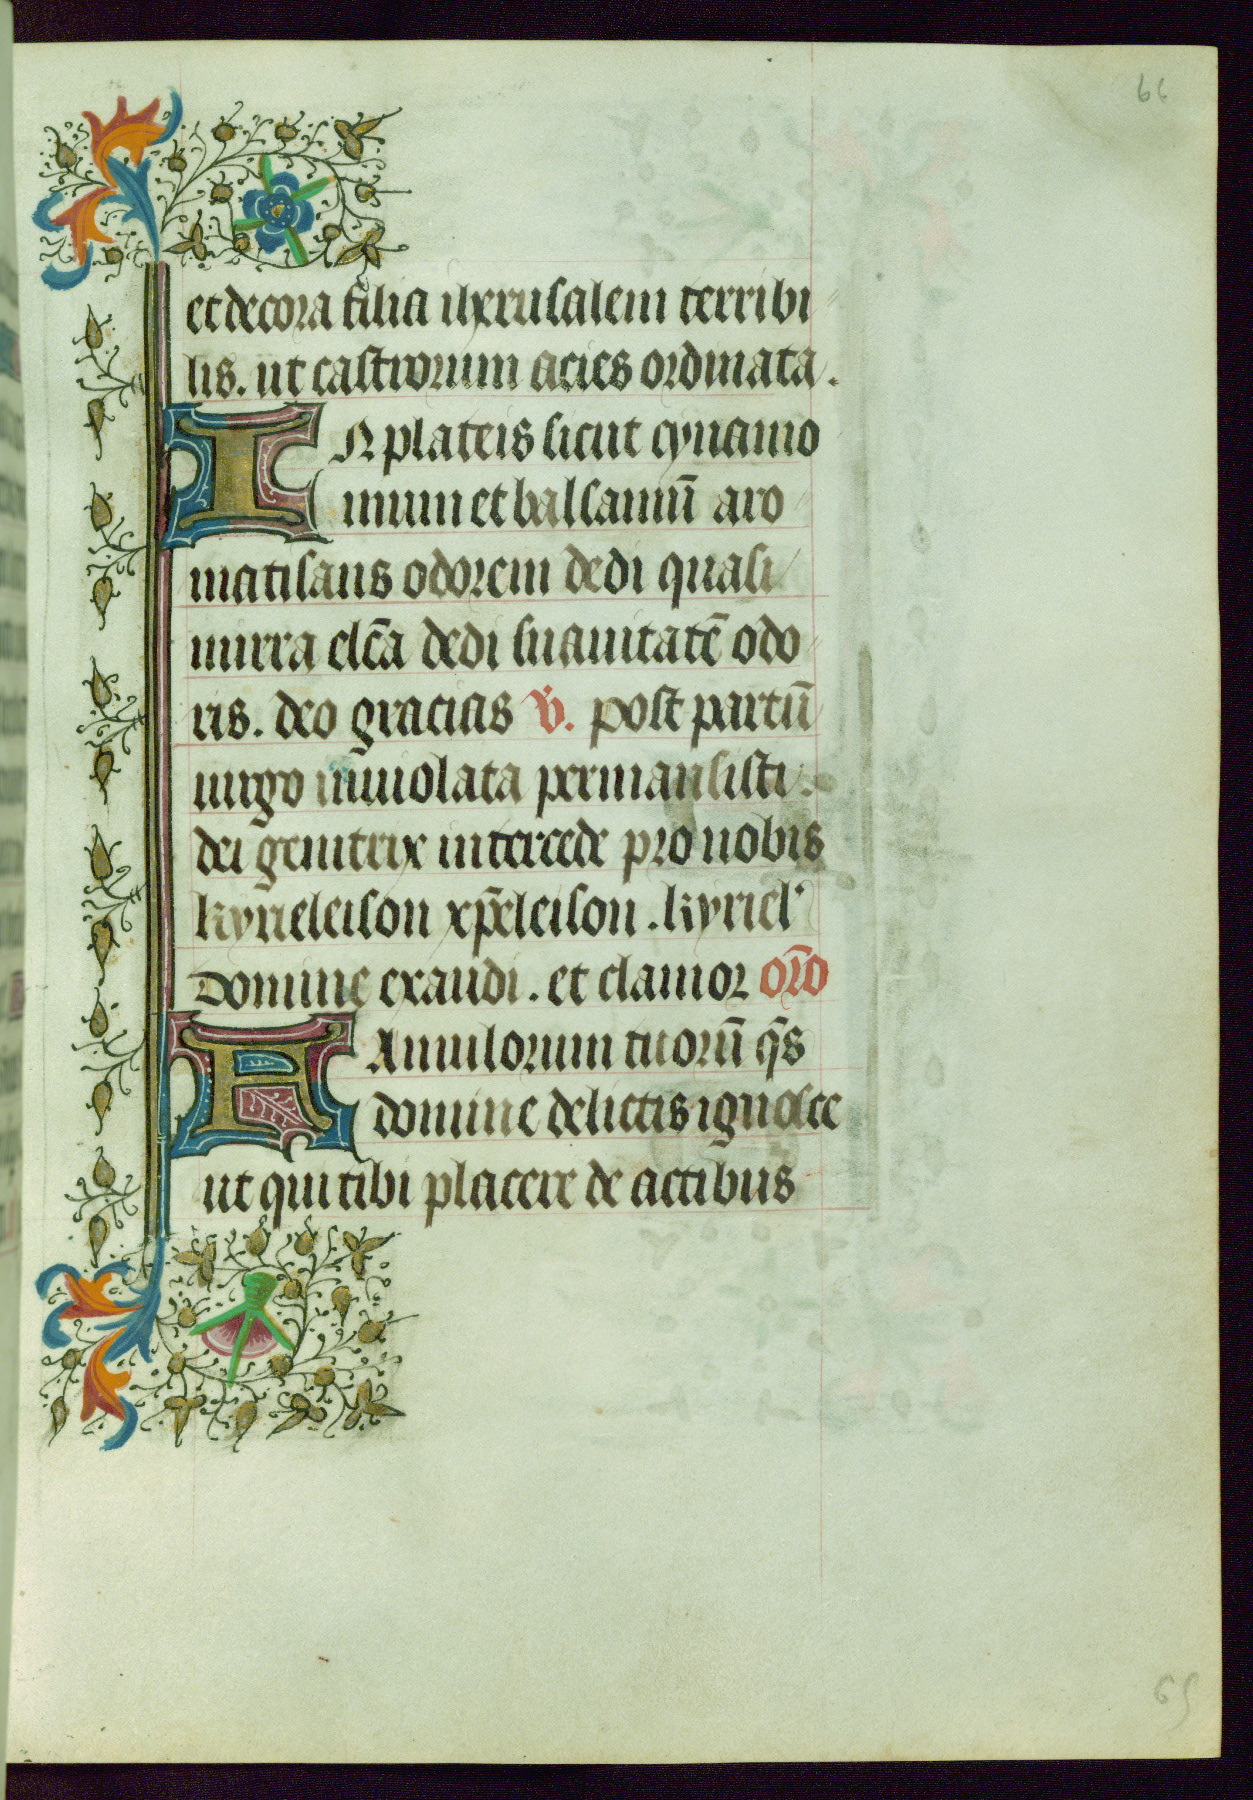 66
et decora filia iherusalem terribi
lis. ut castrorum acies ordinata.
IN plateis sicut cynamo
mum et balsamū aro
matisans odorem dedi quasi
mirra elc̄a dedi suauitatē odo
ris. deo gracias V. post partū
uirgo inuiolata permansisti.
dei genitrix intercede pro nobis
kyrieleison xp̄eleison. kyriel'
Domine exaudi. et clamor or̄o
FAmulorum tuorū q̄s
domine delictis ignosce
ut qui tibi placere de actibus
65